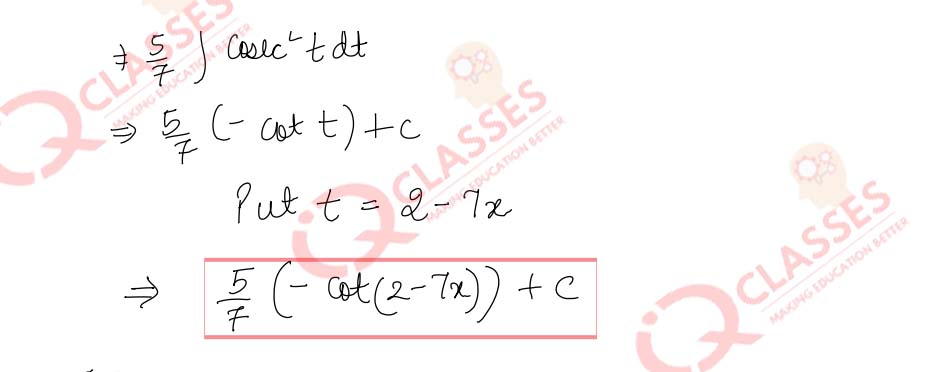 ⇒ 5/7 ∫ cosec² t dt
⇒ 5/7 (- cot t) + c
Put t = 2 - 7x
⇒ 5/7 (- cot(2-7x)) + c
IQ CLASSES
MAKING EDUCATION BETTER
IQ CLASSES
MAKING EDUCATION BETTER
IQ CLASSES
MAKING EDUCATION BETTER